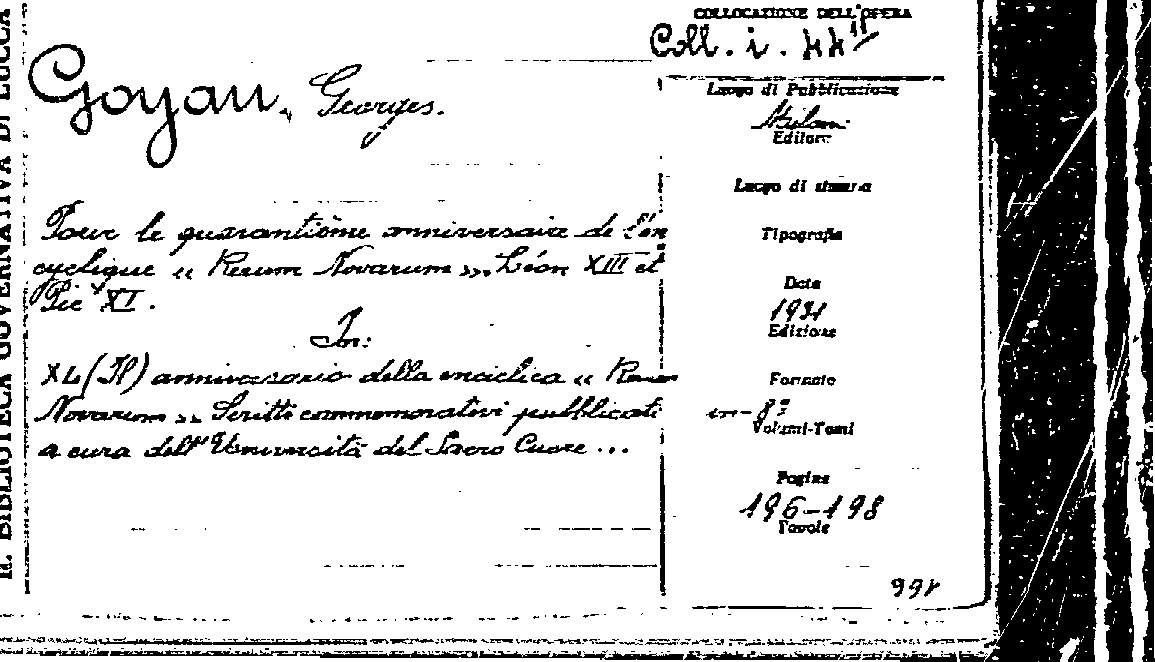 R. BIBLIOTECA GOVERNATIVA DI LUCCA
COLLOCAZIONE DELL'OPERA
Coll. i. 44
Goyau, Georges.
Pour le quarantième anniversaire de l'en
cyclique « Rerum Novarum », Léon XIII et
Pie XI.
In:
XL (II) anniversario della enciclica « Rerum
Novarum » Scritti commemorativi pubblicati
a cura dell' Università del Sacro Cuore ...
Luogo di Pubblicazione
Milano
Editore
Luogo di stampa
Tipografia
Data
1931
Edizione
Formato
in-8º
Volumi-Tomi
Pagine
196-198
Tavole